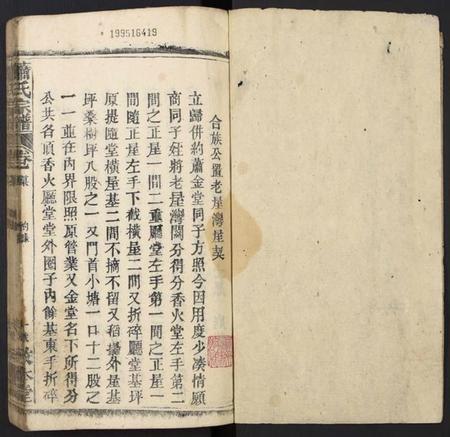 199516419
合族公置老屋灣屋契
立歸併約蕭金堂同子方照今因用度少湊情願
商同子姪將老屋灣鬮分得分香火堂左手第二
間之正屋一間二重廳堂左手第一間之正屋一
間隨正屋左手下截橫屋二間又折碎廳堂基坪
原提隨堂橫屋基二間不摘不留又稻塲外屋基
坪桑樹坪八股之一又門首小塘一口十二股之
一一並在內界限照原管業又金堂名下所得分
公共各項香火廳堂堂外圈子內餘基東手折碎
蕭氏宗譜
卷